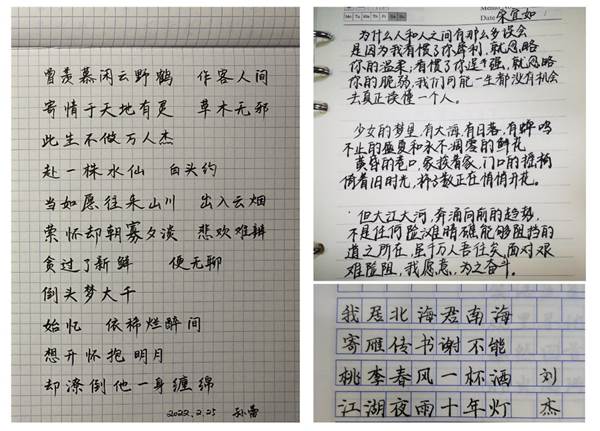 曾羡慕闲云野鹤 作客人间
寄情于天地有灵 草木无邪
此生不做万人杰
赴一株水仙 白头约
当如愿往来山川 出入云烟
怀却朝 夕 悲欢难辨
贪过了新鲜 便无聊
倒头梦大千
始忆 依稀烂醉间
想开怀抱明月
却潦倒他一身缠绵
2022.2.25 孙蕾
Mo Tu We Th Fr Sa Su
Date 宋宜如
为什么人和人之间有那么多误会
是因为我看惯了你犀利,就忽略
你的温柔;看惯了你逞强,就忽略
你的脆弱,我们可能一生都没有机会
去真正读懂一个人。
少女的梦里,有大海,有日落,有蝉鸣
不止的盛夏和永不凋零的鲜花
黄昏的巷口,家挨着家,门口的梧桐
倚着旧时光,杯数正在悄悄开花。
但大江大河,奔涌向前的趋势,
不是任何险滩暗礁能够阻挡的
道之所在,虽千万人吾往矣,面对艰
难险阻,我愿意,为之奋斗。
我居北海君南海
寄雁传书谢不能
桃李春风一杯酒 刘
江湖夜雨十年灯 杰